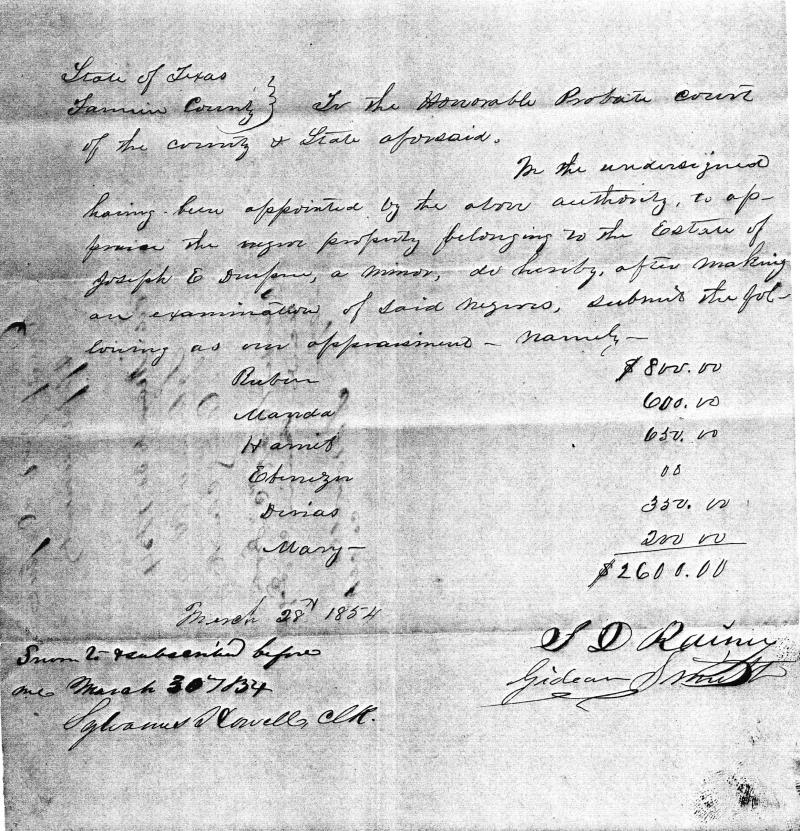 State of Texas
Fannin County } To the Honorable Probate court
of the county & State aforsaid.
We the undersigned
having been appointed by the above authority, to ap-
praise the negro property belonging to the Estate of
Joseph E Dupree, a minor, do hereby, after making
an examination of said negroes, submit the fol-
lowing as our appraisment - namely -
Ruben $800.00
Manda 600.00
Harriet 650.00
Ebenezer 00
Dinias 350.00
Mary - 200 00
$2600.00
March 28th 1854
S D Rainey
Gideon Smith
Sworn to & subscribed before
me March 30th 1854
Sylvanus Howell, Clk.